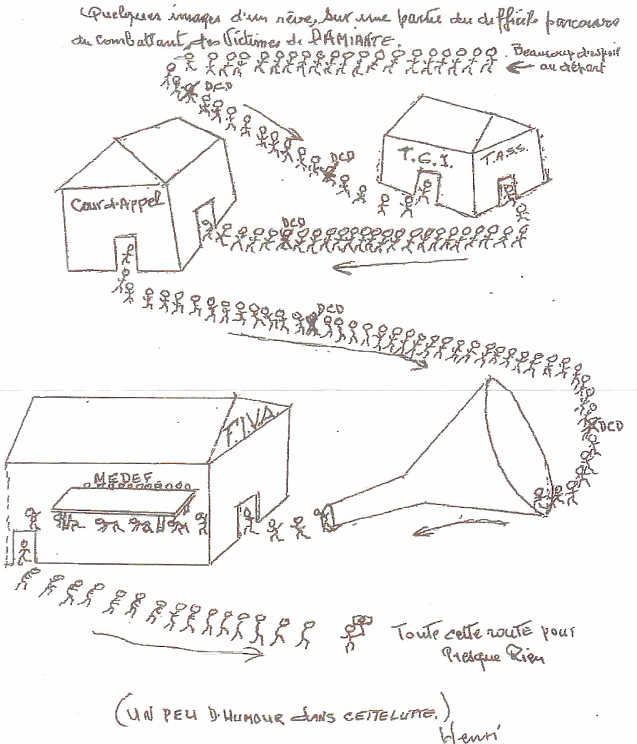 Quelques images d'un rêve, sur une partie du difficile parcours
du combattant, des Victimes de l'AMIANTE.
Beaucoup d'espoir
au départ
DCD
DCD
T.G.I.
T.A.S.S.
Cour d'Appel
DCD
DCD
DCD
F.I.V.A
MEDEF
Toute cette route pour
Presque Rien
(UN PEU D'HUMOUR DANS CETTE LUTTE.)
Henri